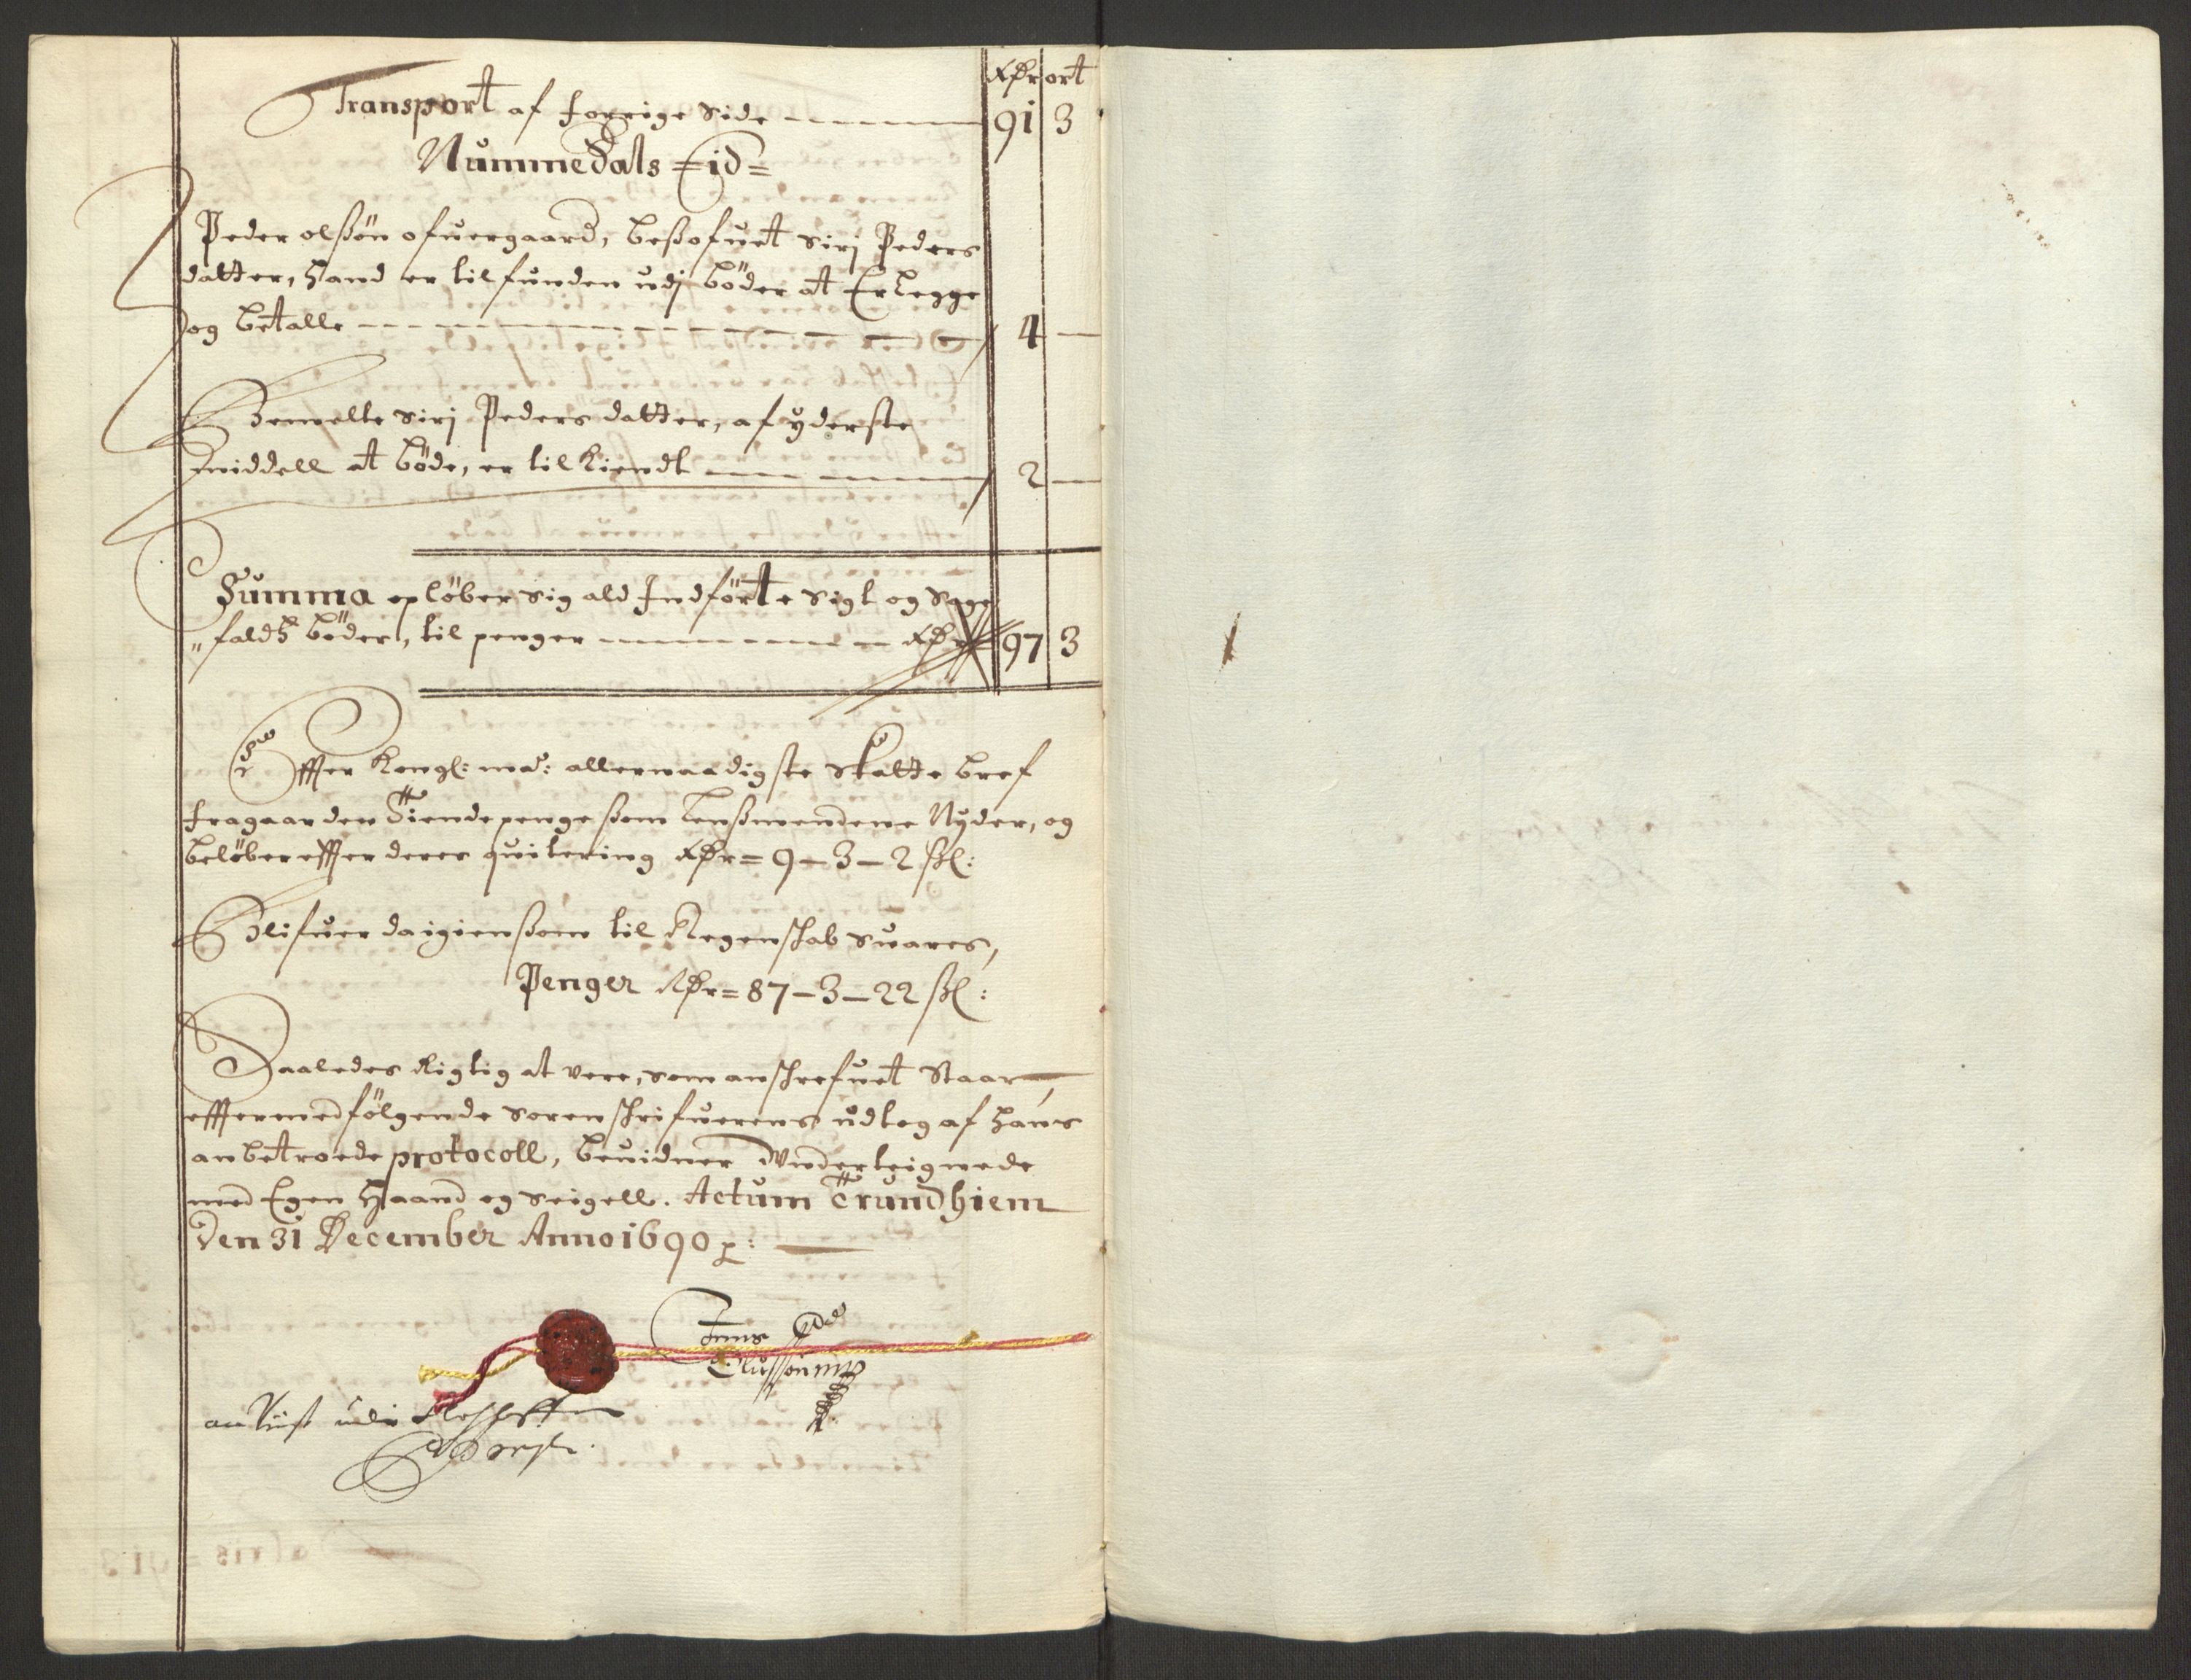 Rdr ort
Transport af forrige Side 91 3
Nummedals Eid
Peder olßön ofuergaard, beßofuet Sirj Peders
datter, Hand er tilfunden udj böder at Erlegge
og betalle 4
Bemelte Sirj Peders datter, af yderste
middell at böde, er til kiendt 2
Summa opløber sig ald Indförte Sigt og Sage
"faldß böder, til penger Rdr 97 3
Effter Kongl: ma: allernaadigste Skatte bref
fragaar den Tiende penge ßom Lenßmendene Nyder, og
beløber effter deres quitering Rdr = 9 – 3 – 2 ßl:
Blifuer da igien ßom til Regenschab Suares,
Penger Rdr = 87 – 3 – 22 ßl:
Saaledes Rigtig at vere, som anschrefuet Staar
effter medfölgende Sorenschrifuerens udtog af Hans
anbetroede protocoll, beuidner Vnderteignede
med Egen Haand og Seigell. Actum Trundhiem
Den 31 December Anno 1690